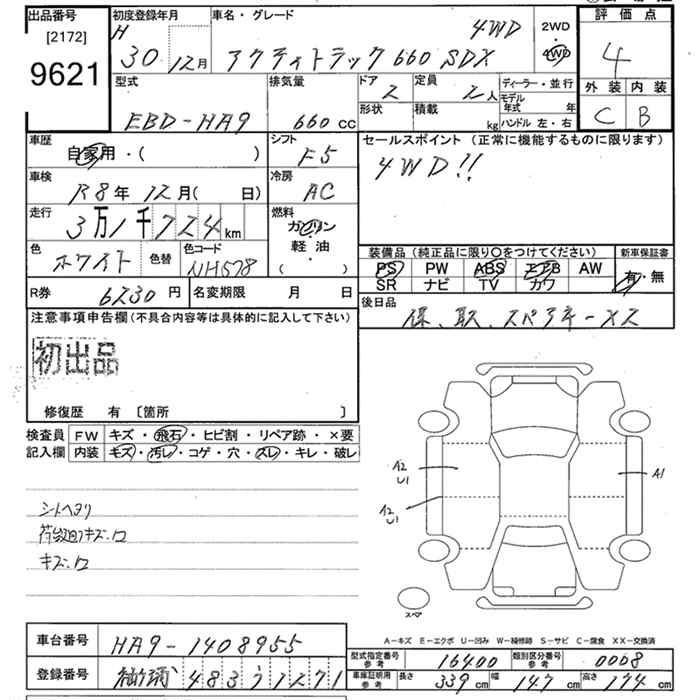 出品番号 初度登録年月 車名・グレード 評価点
[2172] H 30 12月 アクティトラック 660 SDX 4WD 2WD・4WD 4
9621 外装 内装
C B
型式 排気量 ドア 定員 ディーラー・並行
EBD-HA9 660 cc 2 2人 モデル年式 年
形状 積載 kg ハンドル 左・右
車歴 シフト セールスポイント (正常に機能するものに限ります)
自家用・( ) F5 4WD!!
車検 冷房
R8年 12月( 日) AC
走行 燃料
3万1千724km ガソリン・軽油・( )
色 色替 色コード 装備品 (純正品に限り○をつけてください) 新車保証書
ホワイト NH578 PS PW ABS エアB AW 有・無
SR ナビ TV カワ
R券 6230円 名変期限 月 日 後日品
保、取、スペアキーXス
注意事項申告欄 (不具合内容等は具体的に記入して下さい)
初出品
修復歴 有 〔箇所 〕
検査員 FW キズ・飛石・ヒビ割・リペア跡・×要
記入欄 内装 キズ・汚レ・コゲ・穴・スレ・キレ・破レ
A2 U1 A1
A2 U1
シートヘタリ
キズ・凹
スペア
A-キズ E-エクボ U-凹み W-補修跡 S-サビ C-腐食 XX-交換済
車台番号 HA9-1408955
型式指定番号 参考 16400 類別区分番号 参考 0008
登録番号 483 1271
車庫証明用 参考 長さ 339cm 幅 147cm 高さ 174cm